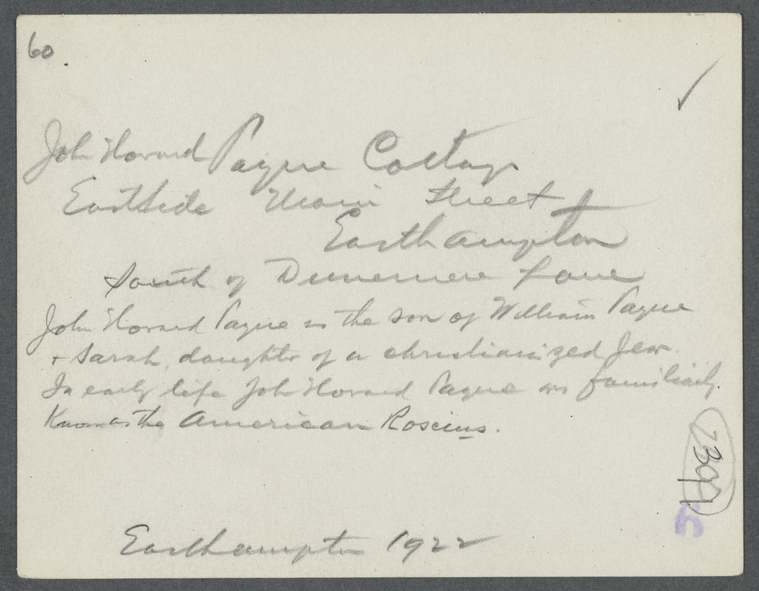 60.
John Howard Payne Cottage
Eastside Main Street
Easthampton
South of Dunemere Lane
John Howard Payne is the son of William Payne
+ Sarah, daughter of a christianized Jew.
In early life John Howard Payne was familiarly
Known as the American Roscius.
Easthampton 1922